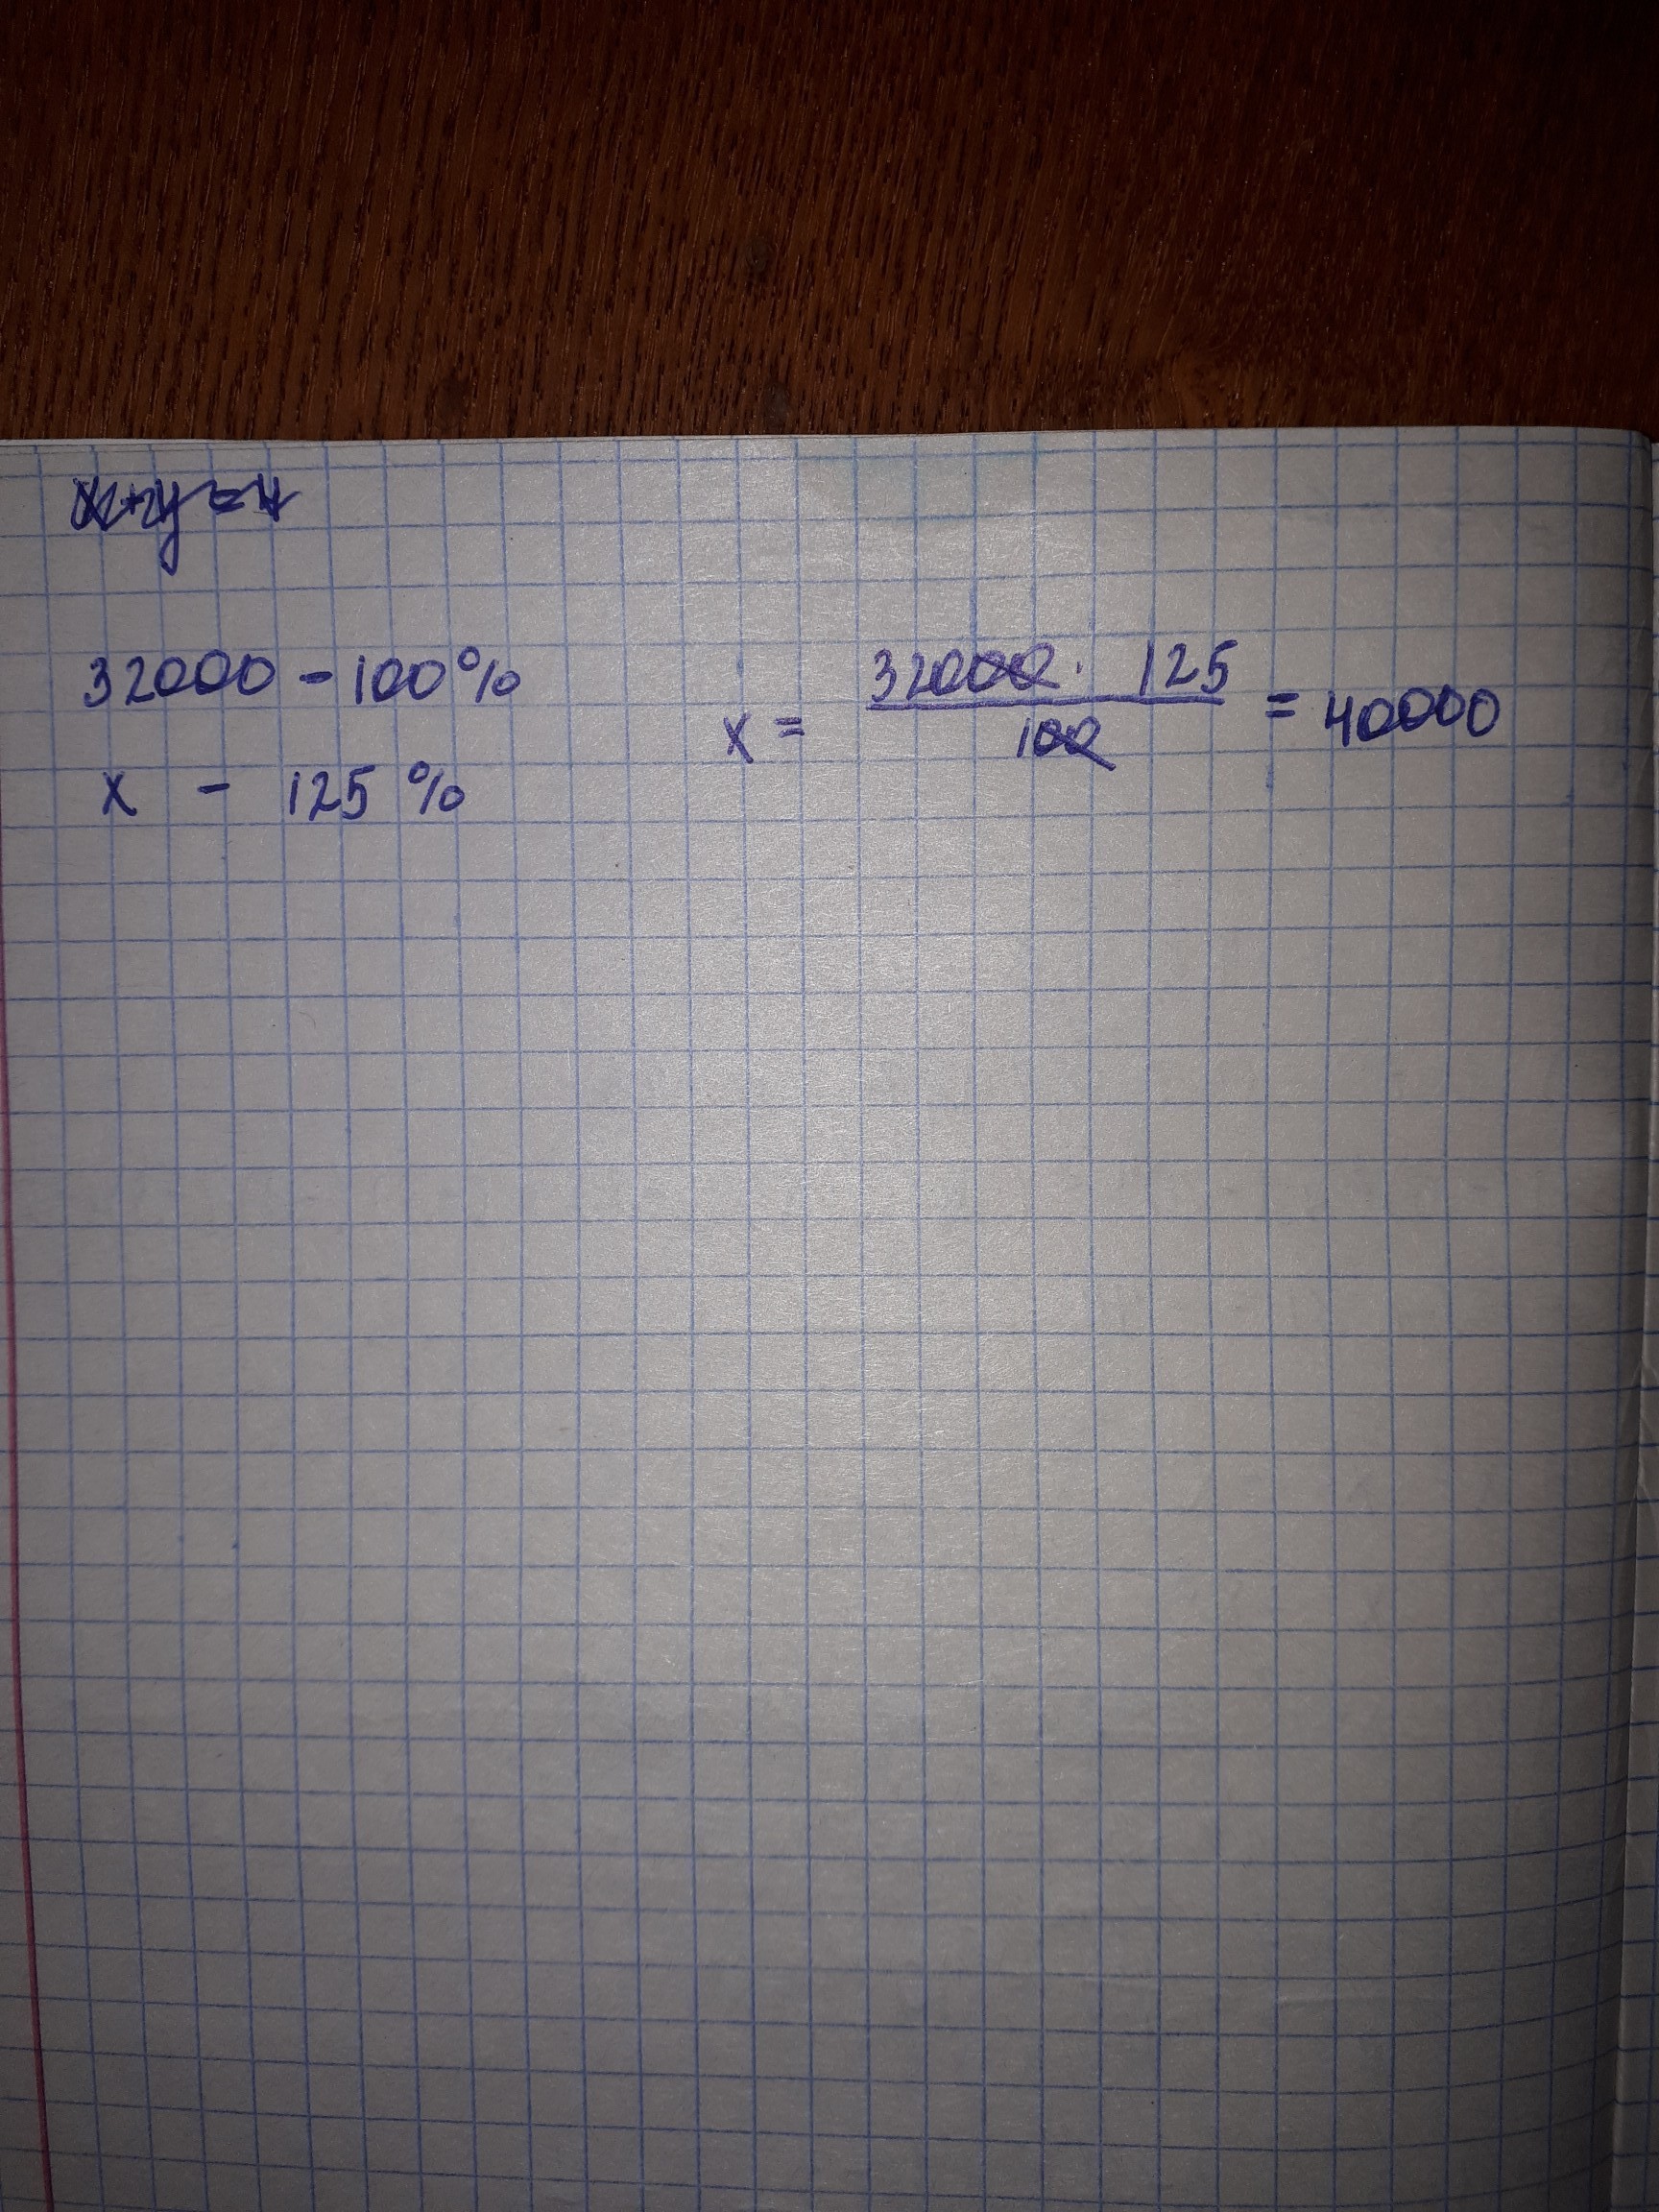 32000 - 100%
x - 125 %
x = 32000 · 125 / 100 = 40000